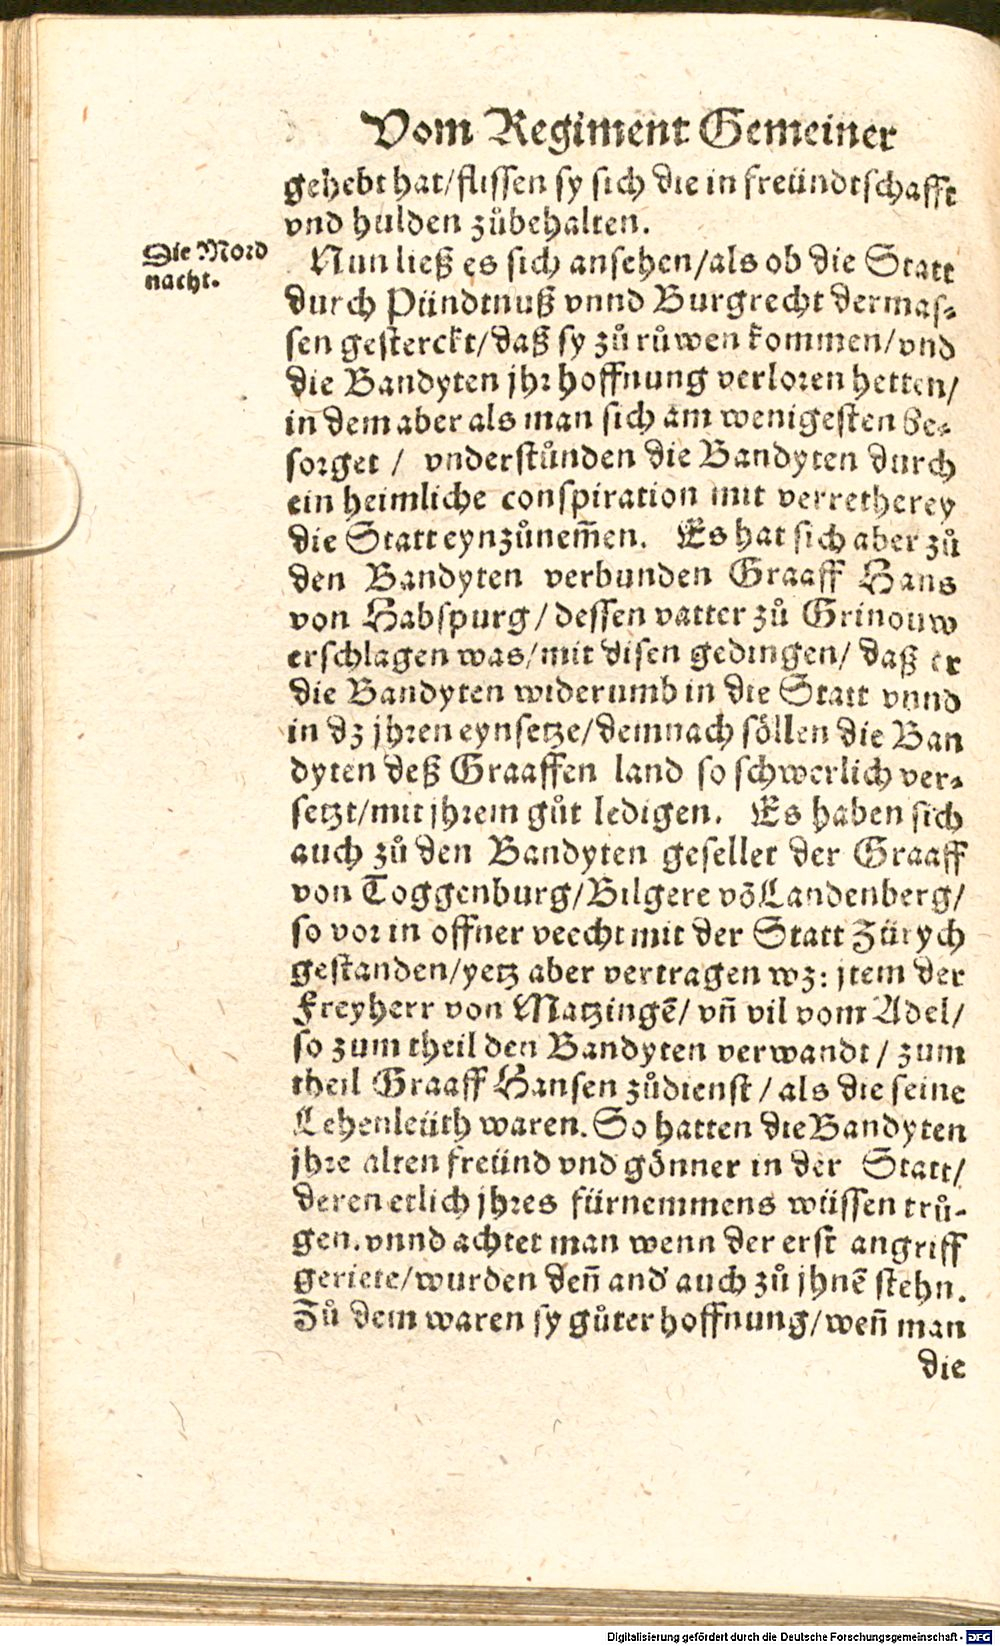 Vom Regiment Gemeiner
gehebt hat/flissen sy sich die in freündtschafft
vnd hulden zůbehalten.
Die Mord
nacht.
Nun ließ es sich ansehen/als ob die Statt
durch Pündtnuß vnnd Burgrecht dermas⸗
sen gesterckt/daß sy zů růwen kommen/vnd
die Bandyten jhr hoffnung verloren hetten/
in dem aber als man sich am wenigesten be⸗
sorget / vnderstůnden die Bandyten durch
ein heimliche conspiration mit verretherey
die Statt eynzůnem̃en. Es hat sich aber zů
den Bandyten verbunden Graaff Hans
von Habspurg/dessen vatter zů Grinouw
erschlagen was/mit disen gedingen/ daß er
die Bandyten widerumb in die Statt vnnd
in dz jhren eynsetze/demnach söllen die Ban
dyten deß Graaffen land so schwerlich ver⸗
setzt/mit jhrem gůt ledigen. Es haben sich
auch zů den Bandyten gesellet der Graaff
von Toggenburg/Bilgere võ Landenberg/
so vor in offner veecht mit der Statt Zürych
gestanden/yetz aber vertragen wz: jtem der
Freyherr von Matzingẽ/ vñ vil vom Adel/
so zum theil den Bandyten verwandt / zum
theil Graaff Hansen zůdienst / als die seine
Lehenleüth waren. So hatten die Bandyten
jhre alten freünd vnd gönner in der Statt/
deren etlich jhres fürnemmens wüssen trů-
gen. vnnd achtet man wenn der erst angriff
geriete/wurden deñ and' auch zů jhnẽ stehn.
Zů dem waren sy gůter hoffnung/weñ man
die
Digitalisierung gefördert durch die Deutsche Forschungsgemeinschaft - DFG